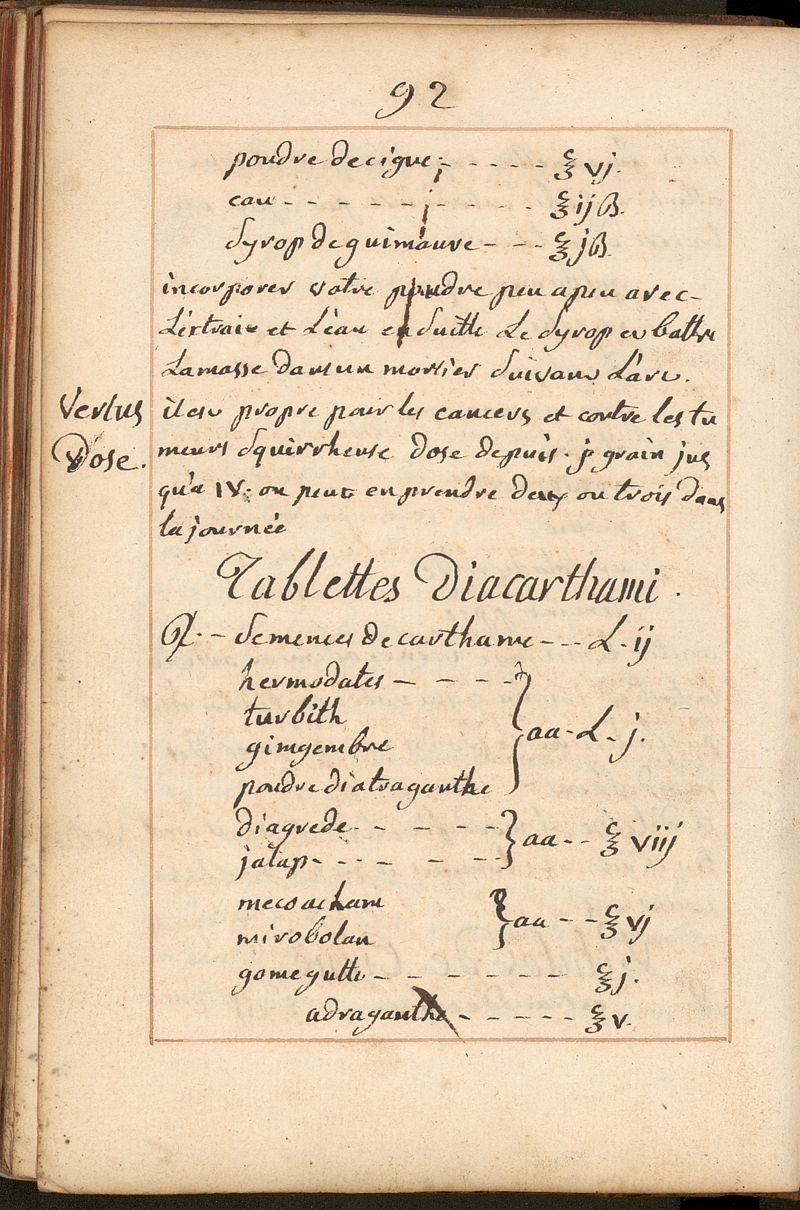 92
poudre de cigue - - - - - ℥ vj.
eau - - - - - - - - - - ℥ ij ß.
Syrop de guimauve - - - ℥ j ß.
incorporer votre poudre peu a peu avec
L'extrait et L'eau ensuitte Le Syrop et battre
La masse dans un mortier Suivant L'art.
Vertus
il est propre pour les cancers et contre les tu
Dose.
meurs Squirrheuse Dose depuis j grain jus
qu'a IV. on peut en prendre deux ou trois dans
la journée
Tablettes Diacarthami.
℞. - Semences de carthame - - - L. ij
hermodates - - - - -
turbith
gimgembre
aa - L. j.
poudre diatraganthe
diagrede - - - - -
jalap - - - - - -
aa - - ℥ viij
mecoacham
mirobolan
aa - - ℥ vj
gomegutte - - - - - - - ℥ j.
adraganthe - - - - - ℥ v.